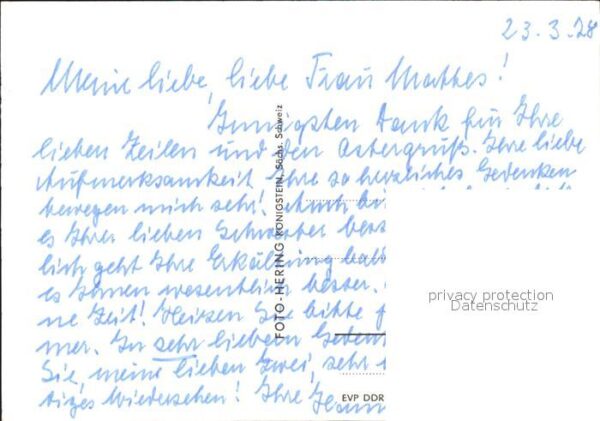 23.3.78
Meine liebe, liebe Frau Mattes!
Innigsten Dank für Ihre
lieben Zeilen und den Ostergruß. Ihre liebe
Aufmerksamkeit, Ihre so herzliches Gedenken
bewegen mich sehr! Auch
es Ihrer lieben Schwester bess
lich geht Ihre Erkältung
es Ihnen wesentlich besser.
ne Zeit! Heizen Sie bitte
mer. In sehr liebem Geden
Sie, meine lieben Zwei, sehr
tiges Wiedersehen! Ihre
FOTO-HERING KÖNIGSTEIN, Sächs. Schweiz
privacy protection
Datenschutz
EVP DDR